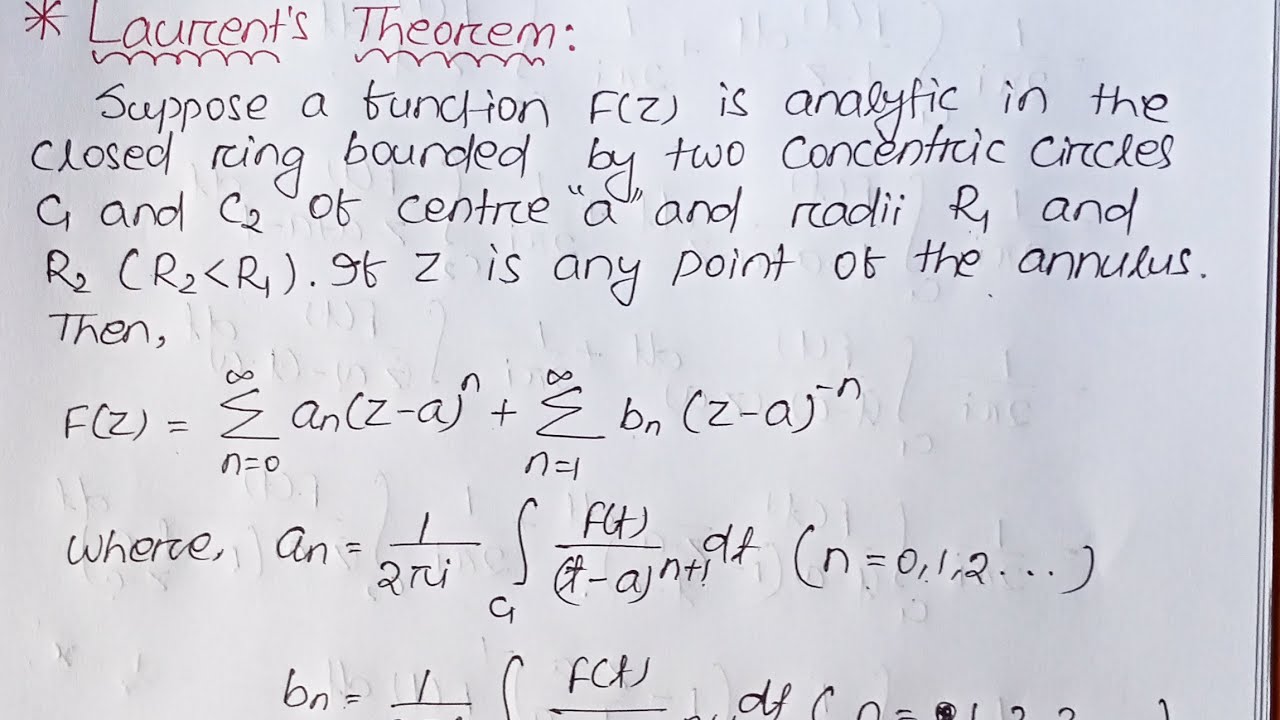 * Laurent's Theorem:
Suppose a function F(z) is analytic in the
closed ring bounded by two concentric circles
C₁ and C₂ of centre "a" and radii R₁ and
R₂ (R₂<R₁). If z is any point of the annulus.
Then,
F(z) = ∞∑n=0 aₙ(z-a)ⁿ + ∞∑n=1 bₙ (z-a)⁻ⁿ
where, aₙ = 1/2πi ∫C₁ F(t)/(t-a)ⁿ⁺¹ dt (n=0,1,2...)
bₙ = 1/ ∫ F(t)/ dt ( n= 1,2,3...)